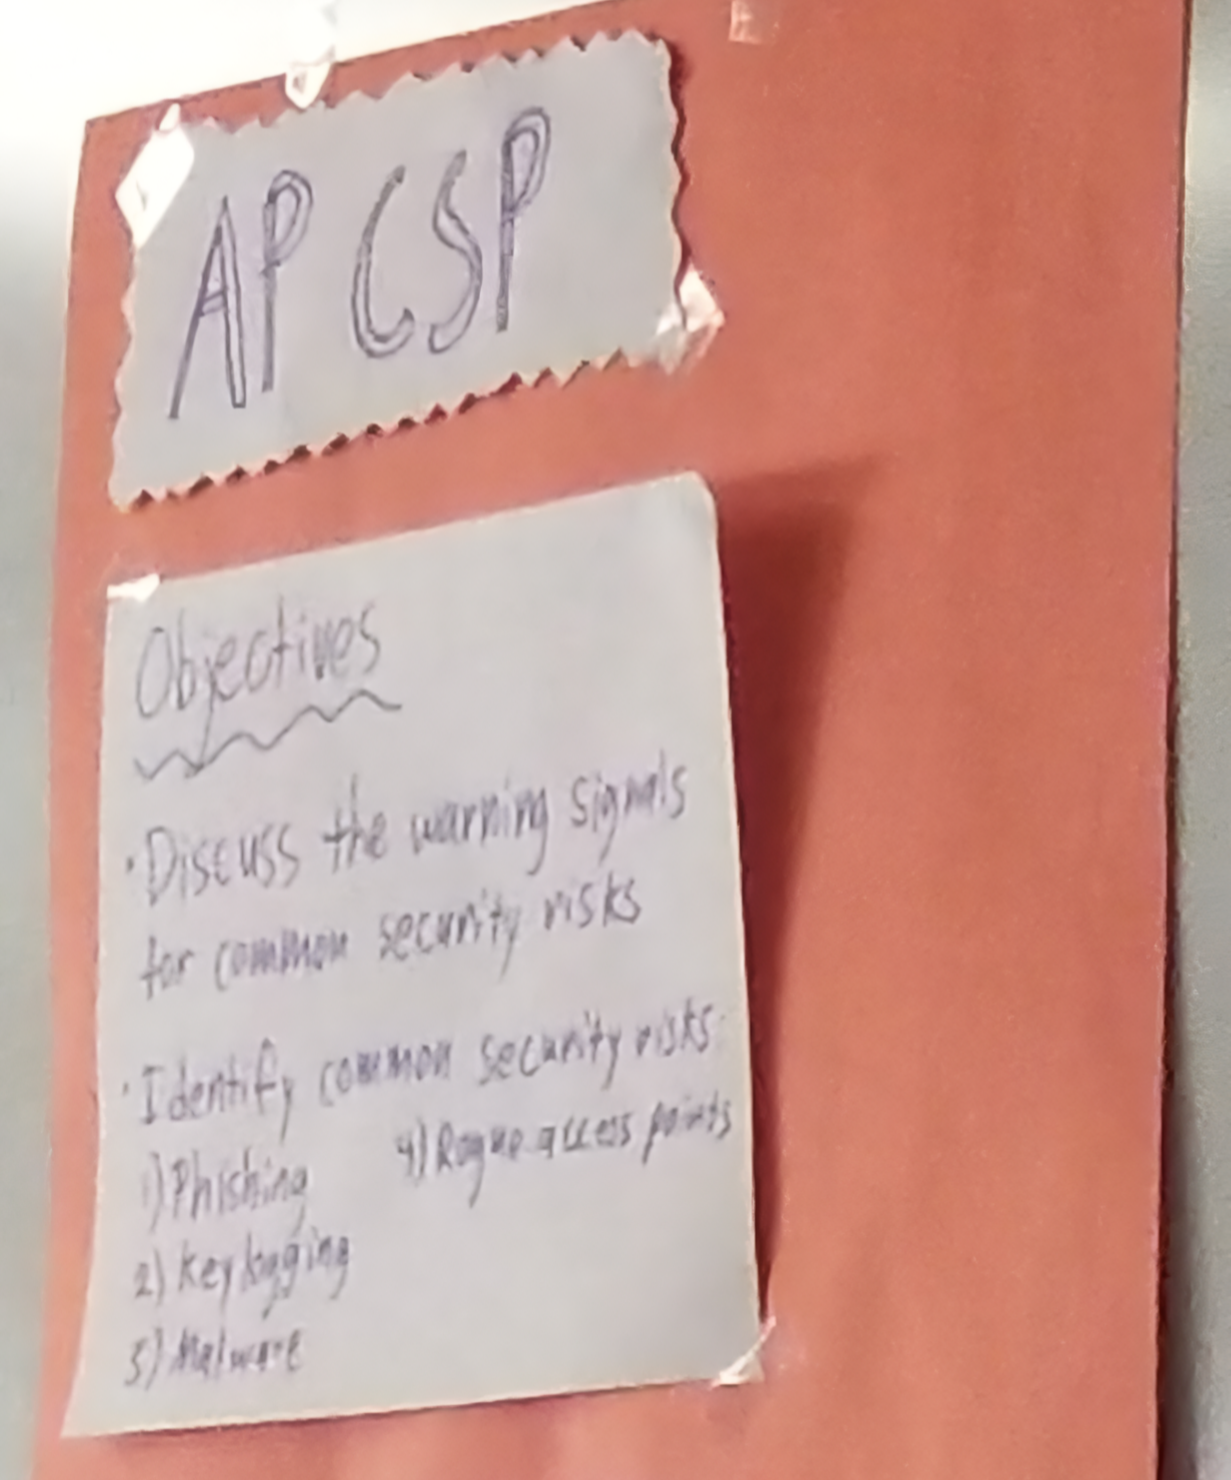 AP CSP
Objectives
· Discuss the warning signals
for common security risks
· Identify common security risks:
1) Phishing
2) Keylogging
3) Malware
4) Rogue access points